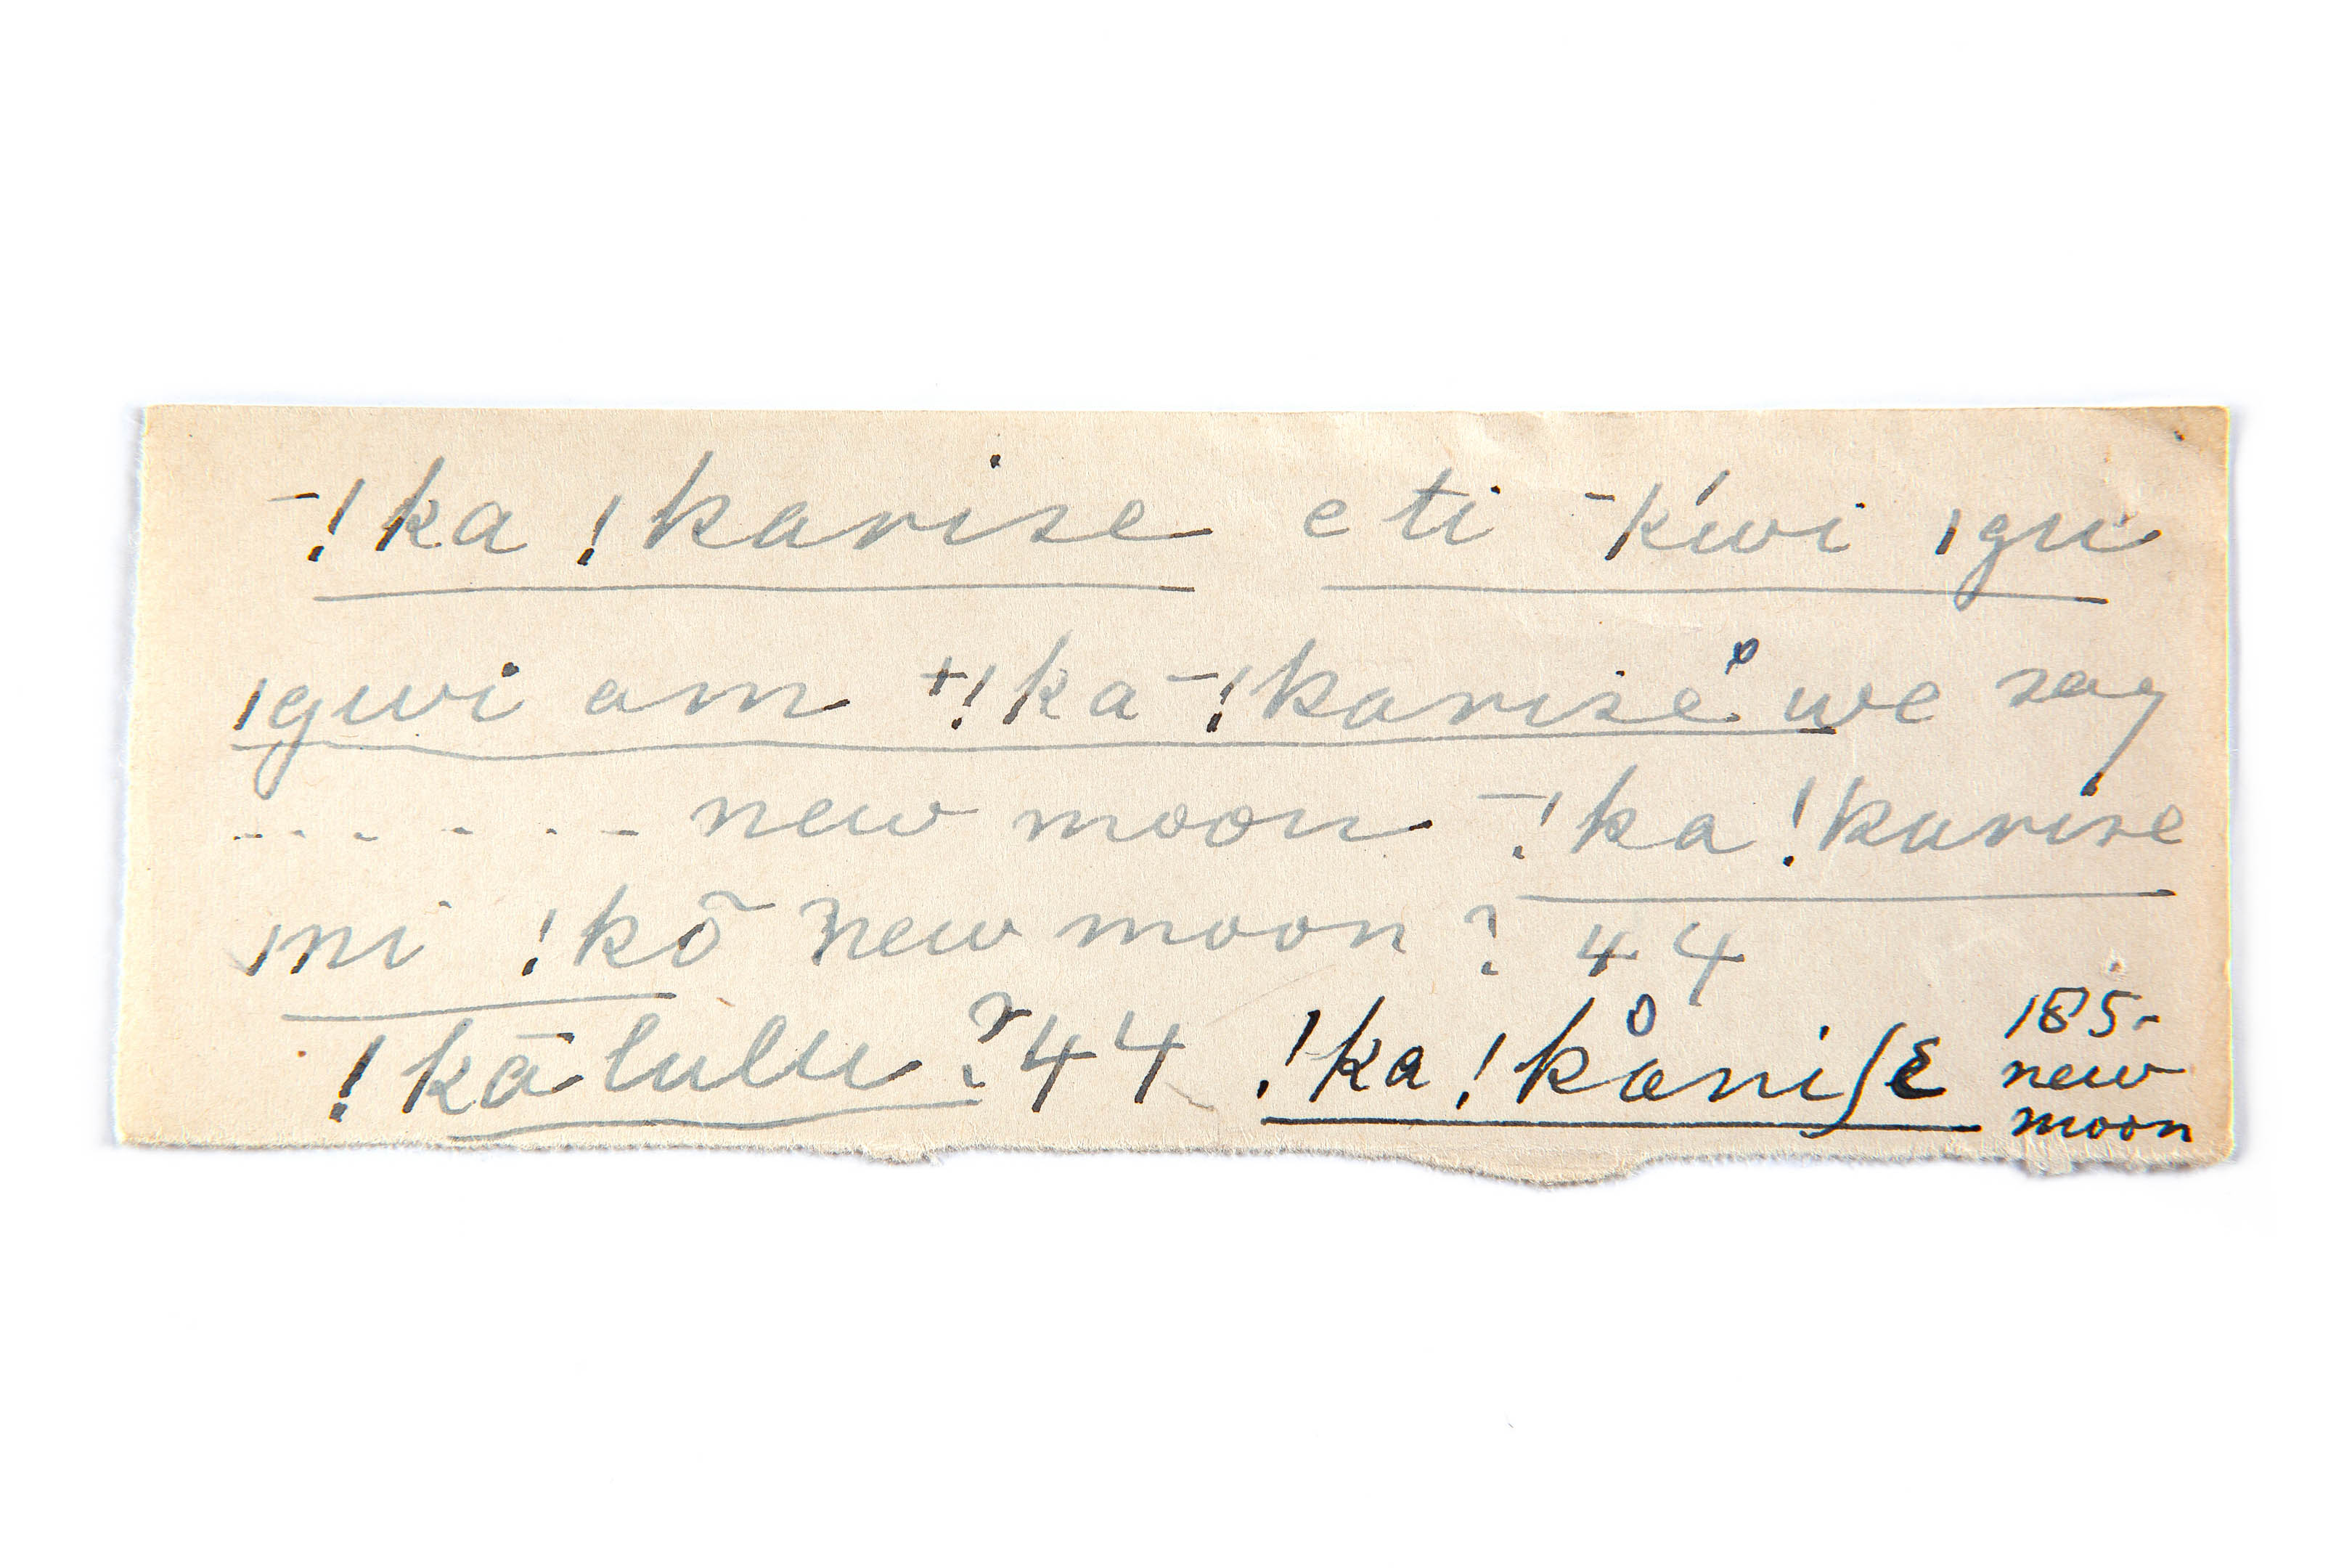 ˉ!ka !karise e ti ˉk'wi ıgu
ıgwi am +!ka ˉ!karise̊ we say
. . . . . . new moon ˉ!ka !karise
ıni !kõ new moon ? 44
!kālulu ? 44 !ka !kåniʃɛ 185-
new
moon